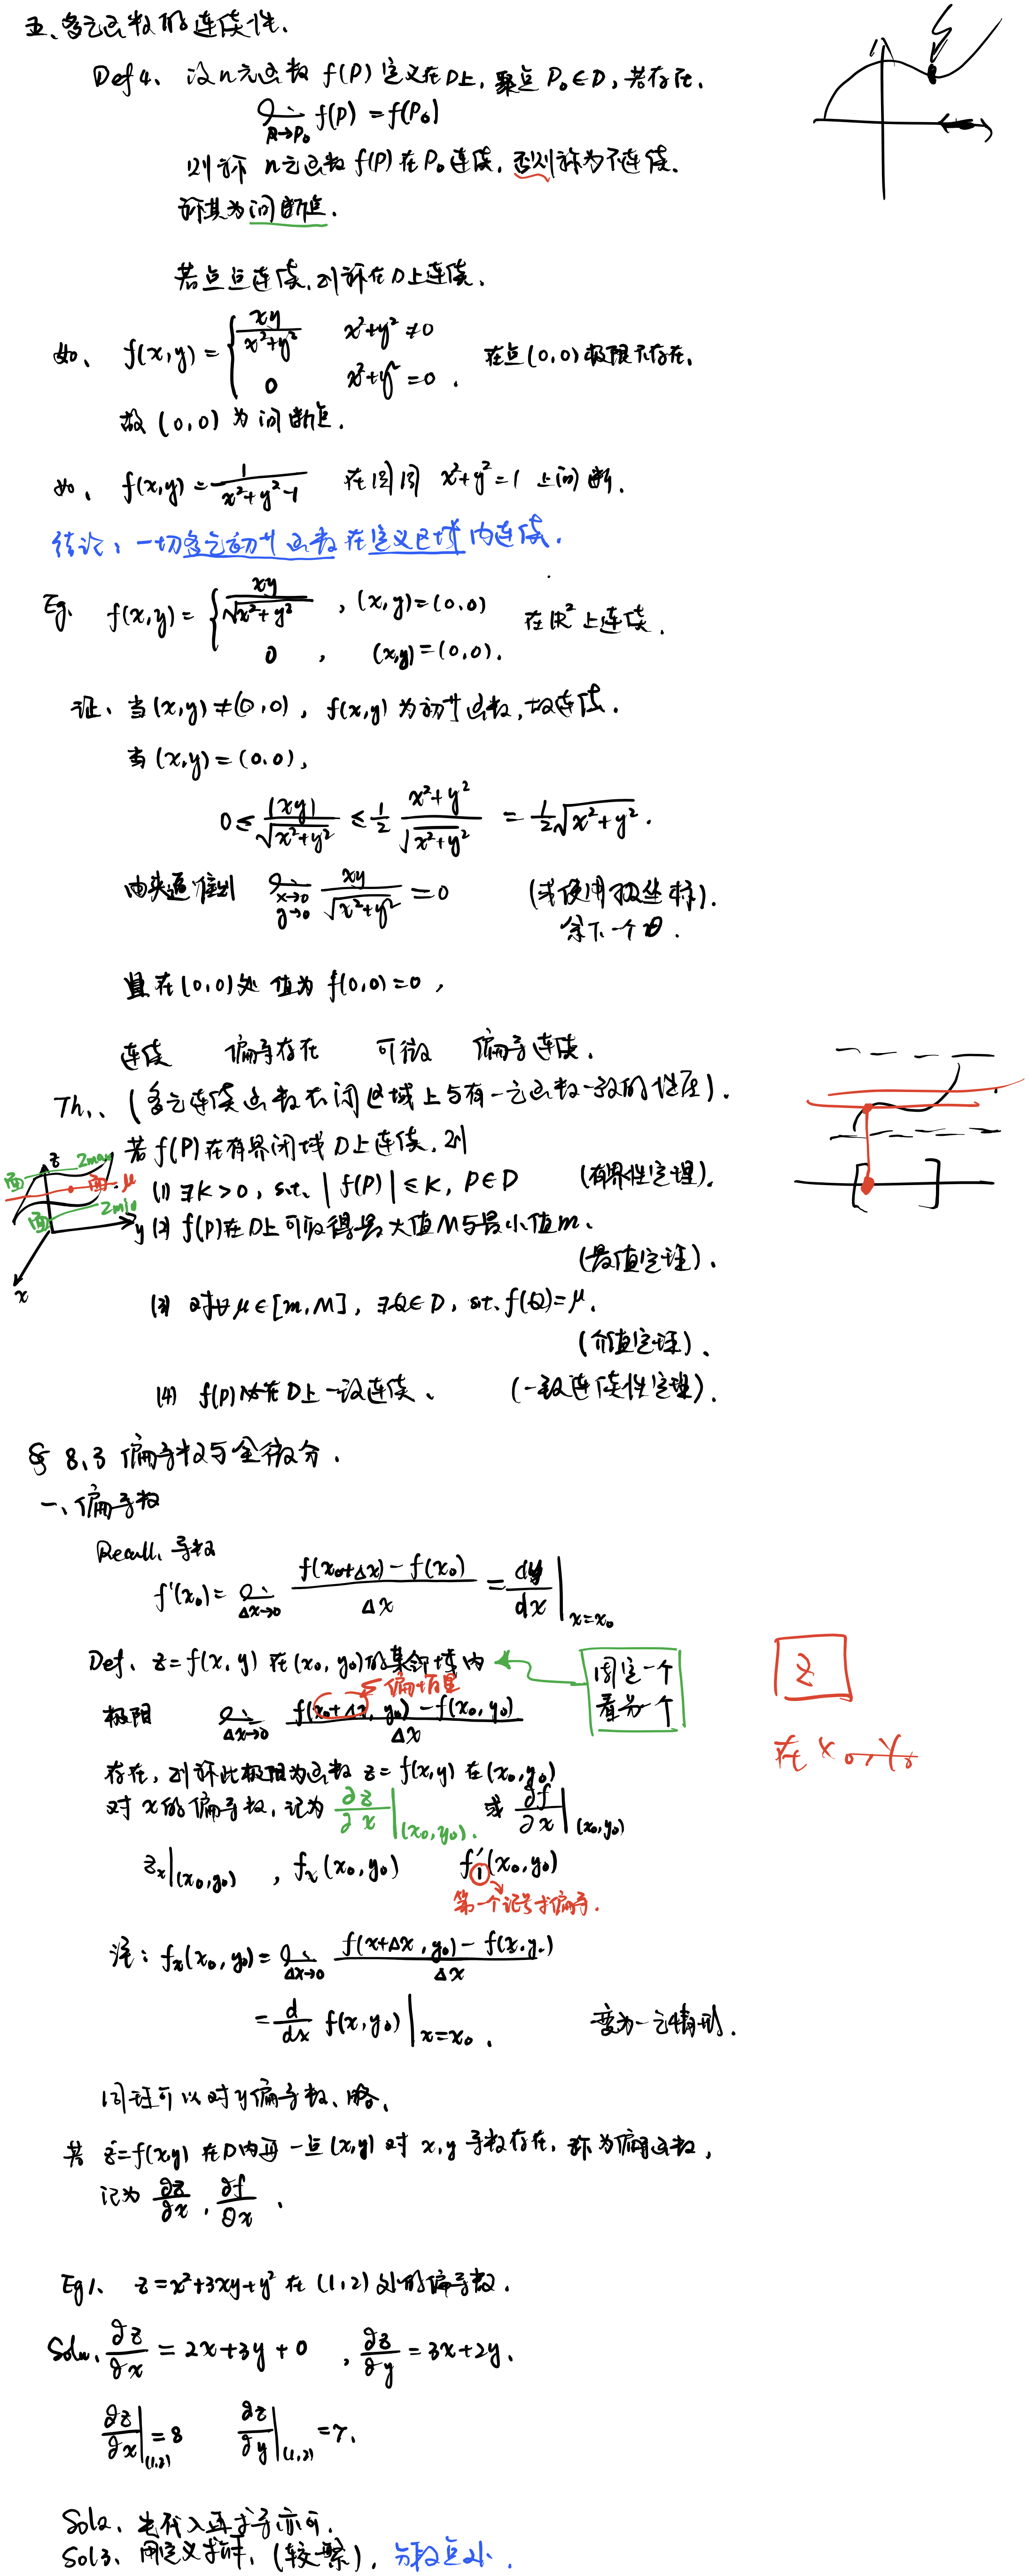 五、多元函数的连续性.
Def 4、设n元函数 f(P) 定义在D上, 聚点 P₀∈D, 若存在.
lim P→P₀ f(P) = f(P₀)
则称 n元函数 f(P) 在 P₀ 连续, 否则称为不连续.
称其为间断点.
若点点连续, 则称在D上连续.
如、 f(x,y) = { xy/(x²+y²)  x²+y²≠0
0  x²+y²=0 . 在点(0,0)极限不存在.
故 (0,0) 为间断点.
如、 f(x,y) = 1/(x²+y²-1) 在圆周 x²+y²=1 上间断.
结论: 一切多元初等函数在定义区域内连续.
Eg. f(x,y) = { xy/√(x²+y²) , (x,y)=(0,0)
0 , (x,y)=(0,0). 在ℝ²上连续.
证、当(x,y)≠(0,0), f(x,y) 为初等函数, 故连续.
当(x,y)=(0,0),
0 ≤ |xy|/√(x²+y²) ≤ 1/2 (x²+y²)/√(x²+y²) = 1/2 √(x²+y²).
由夹逼准则 lim x→0 y→0 xy/√(x²+y²) = 0 (或使用极坐标).
余下一个θ.
且在(0,0)处 值为 f(0,0)=0,
连续 偏导存在 可微 偏导连续.
Th1、(多元连续函数在闭区域上与有一元函数一致的性质).
若 f(P) 在有界闭域 D上连续, 则
(1) ∃K>0, s.t. |f(P)| ≤ K, P∈D (有界性定理).
(2) f(P)在D上可取得最大值M与最小值m.
(最值定理).
(3) 对∀μ∈[m,M], ∃Q∈D, s.t. f(Q)=μ.
(介值定理).
(4) f(P)必在D上一致连续. (一致连续性定理).
z
面 zmax
面 μ
面 zmin
y
x
§ 8.3 偏导数与全微分.
一、偏导数
Recall、导数
f'(x₀) = lim Δx→0 (f(x₀+Δx)-f(x₀))/Δx = dy/dx |x=x₀
Def、z=f(x,y) 在(x₀,y₀)的某邻域内
固定一个
看另一个
偏增量
极限 lim Δx→0 (f(x₀+Δx, y₀)-f(x₀,y₀))/Δx
z
在 x₀, y₀
存在, 则称此极限为函数 z=f(x,y) 在(x₀,y₀)
对 x 的偏导数, 记为 ∂z/∂x |(x₀,y₀). 或 ∂f/∂x |(x₀,y₀)
zx|(x₀,y₀) , fx(x₀,y₀) f'1(x₀,y₀)
第一个记号求偏导.
注: fx(x₀,y₀) = lim Δx→0 (f(x+Δx, y₀)-f(x.y.))/Δx
= d/dx f(x,y₀) |x=x₀ . 变为一元情形.
同理可以对y偏导数、略.
若 z=f(x,y) 在D内每一点(x,y) 对 x,y 导数存在, 称为偏导函数,
记为 ∂z/∂x , ∂f/∂x .
Eg1、 z=x²+3xy+y² 在 (1,2) 处的偏导数.
Solu、 ∂z/∂x = 2x+3y+0 , ∂z/∂y = 3x+2y.
∂z/∂x |(1,2) = 8 ∂z/∂y |(1,2) = 7.
Sol2、先代入再求导亦可.
Sol3、用定义求解. (较繁). 分段点处.